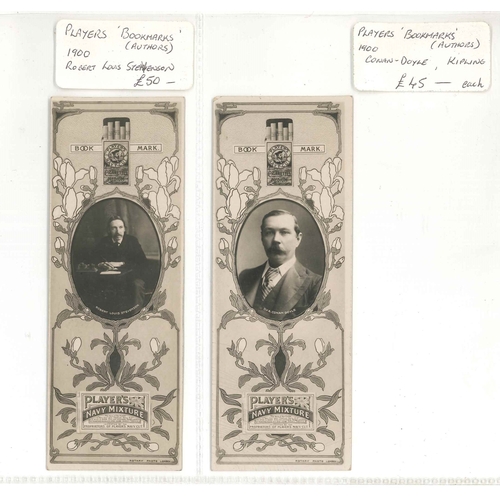 PLAYERS 'BOOKMARKS'
1900 (AUTHORS)
ROBERT LOUIS STEVENSON
£50 —
PLAYERS 'BOOKMARKS'
1900 (AUTHORS)
CONAN-DOYLE, KIPLING
£45 — each
BOOK MARK
ROBERT LOUIS STEVENSON
PLAYER'S
NAVY MIXTURE
ROTARY PHOTO
BOOK MARK
SIR CONAN DOYLE
PLAYER'S
NAVY MIXTURE
ROTARY PHOTO